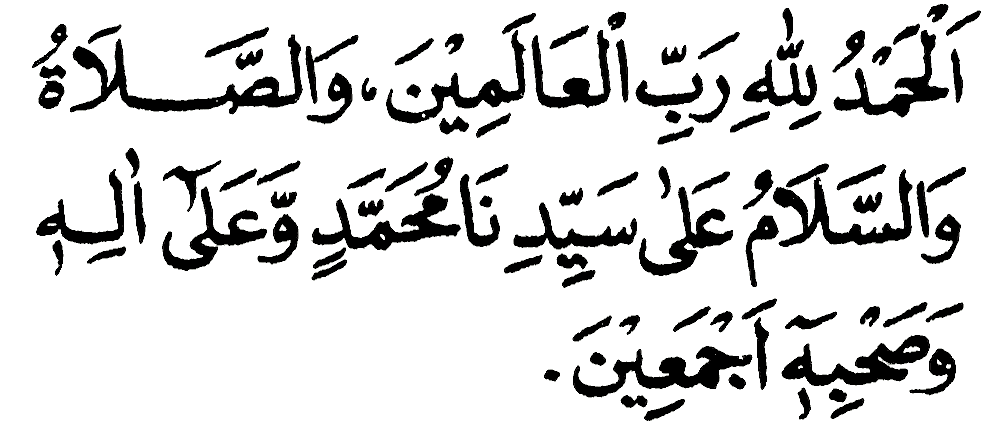 اَلْحَمْدُ لِلّٰهِ رَبِّ الْعَالَمِيْنَ، وَالصَّلَاةُ
وَالسَّلَامُ عَلٰى سَيِّدِ نَا مُحَمَّدٍ وَّعَلٰٓى اٰلِهٖ
وَصَحْبِهٖٓ اَجْمَعِيْنَ.